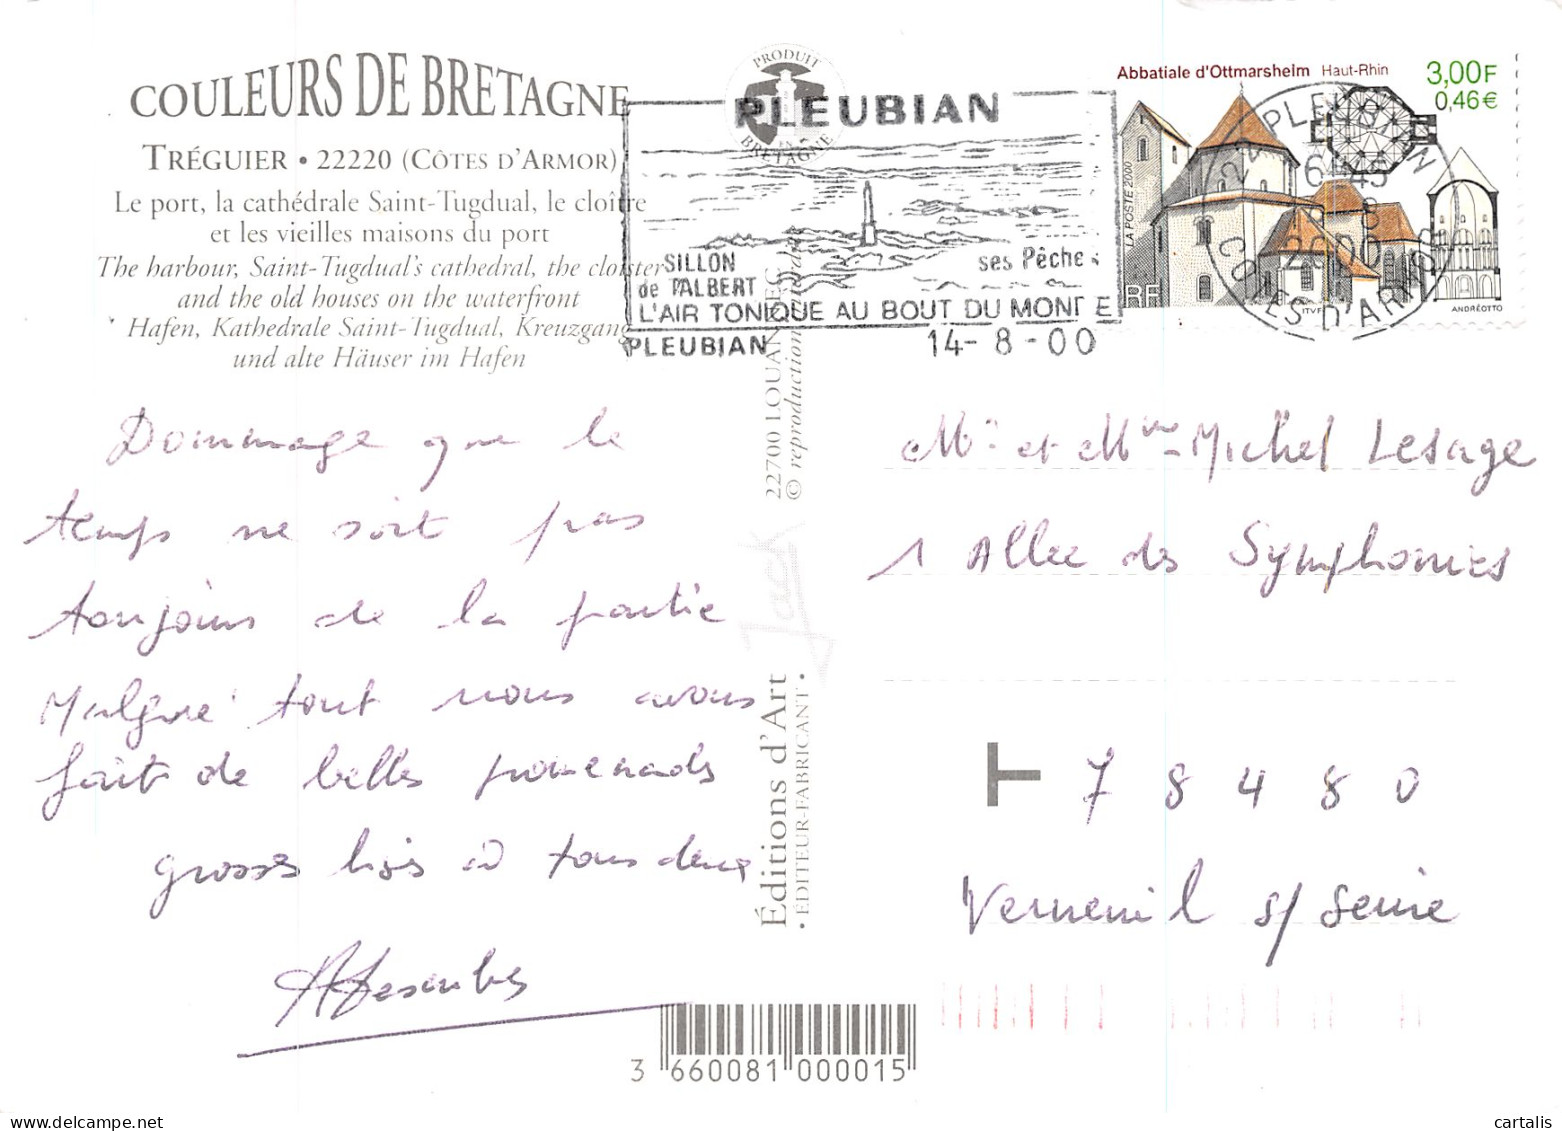 COULEURS DE BRETAGNE
TRÉGUIER • 22220 (CÔTES D'ARMOR)
Le port, la cathédrale Saint-Tugdual, le cloître
et les vieilles maisons du port
The harbour, Saint-Tugdual's cathedral, the cloister
and the old houses on the waterfront
Hafen, Kathedrale Saint-Tugdual, Kreuzgang
und alte Häuser im Hafen
PRODUIT
BRETAGNE
PLEUBIAN
SILLON
de TALBERT
ses Pêches
L'AIR TONIQUE AU BOUT DU MONDE
PLEUBIAN
14-8-00
Abbatiale d'Ottmarsheim Haut-Rhin
3,00F
0,46€
LA POSTE 2000
RF
ITVF
ANDRÉOTTO
22 PLEUBIAN
2000
COTES D'ARMOR
Dommage que le
temps ne soit pas
toujours de la partie
Malgré tout nous avons
fait de belles promenades
grosses bises à tous deux
22700 LOUANNEC
© reproduction
Jack
Éditions d'Art
• ÉDITEUR-FABRICANT •
Mr et Mme Michel Lesage
1 Allee des Symphonies
78480
Verneuil s/ Seine
3 660081 000015
cartalis